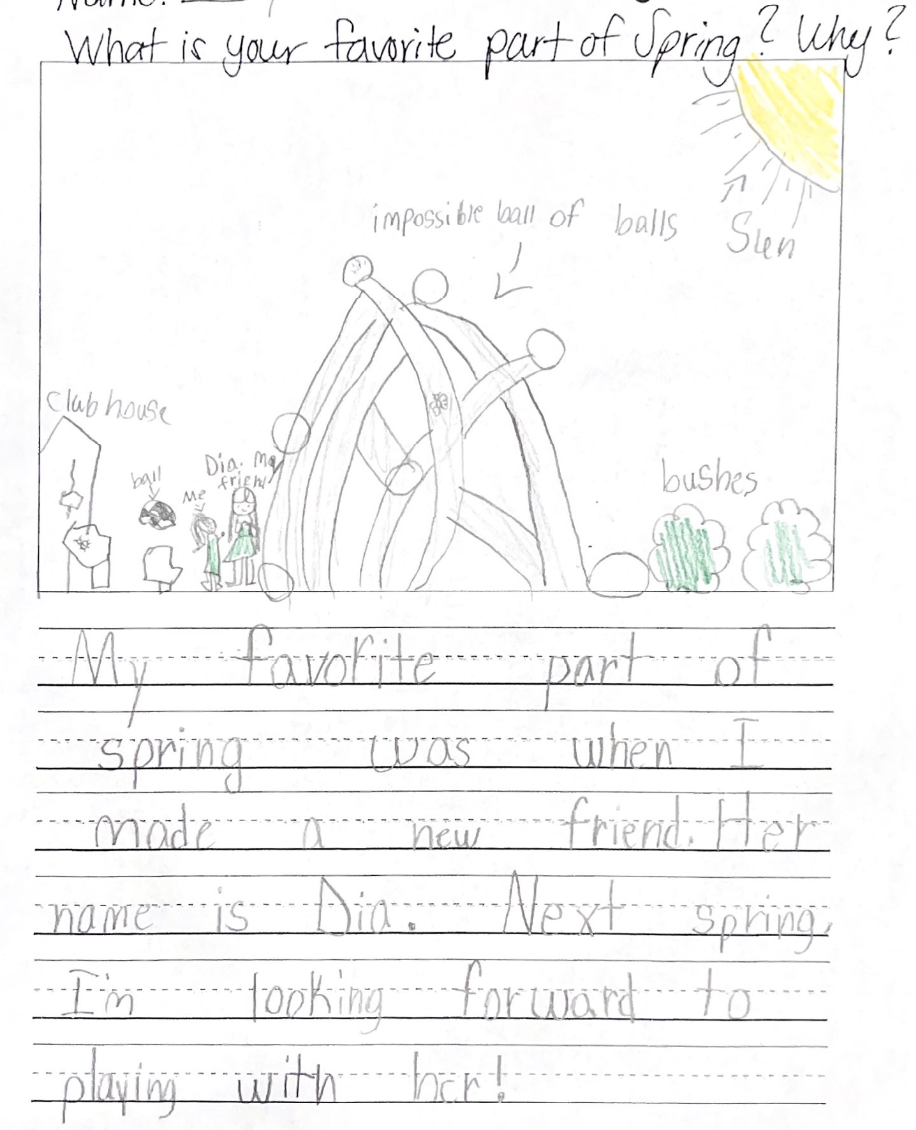 Name:
What is your favorite part of Spring? Why?
impossible ball of balls
Sun
Club house
ball
Me
Dia. My
friend
bushes
My favorite part of
spring was when I
made a new friend. Her
name is Dia. Next spring,
I'm looking forward to
playing with her!